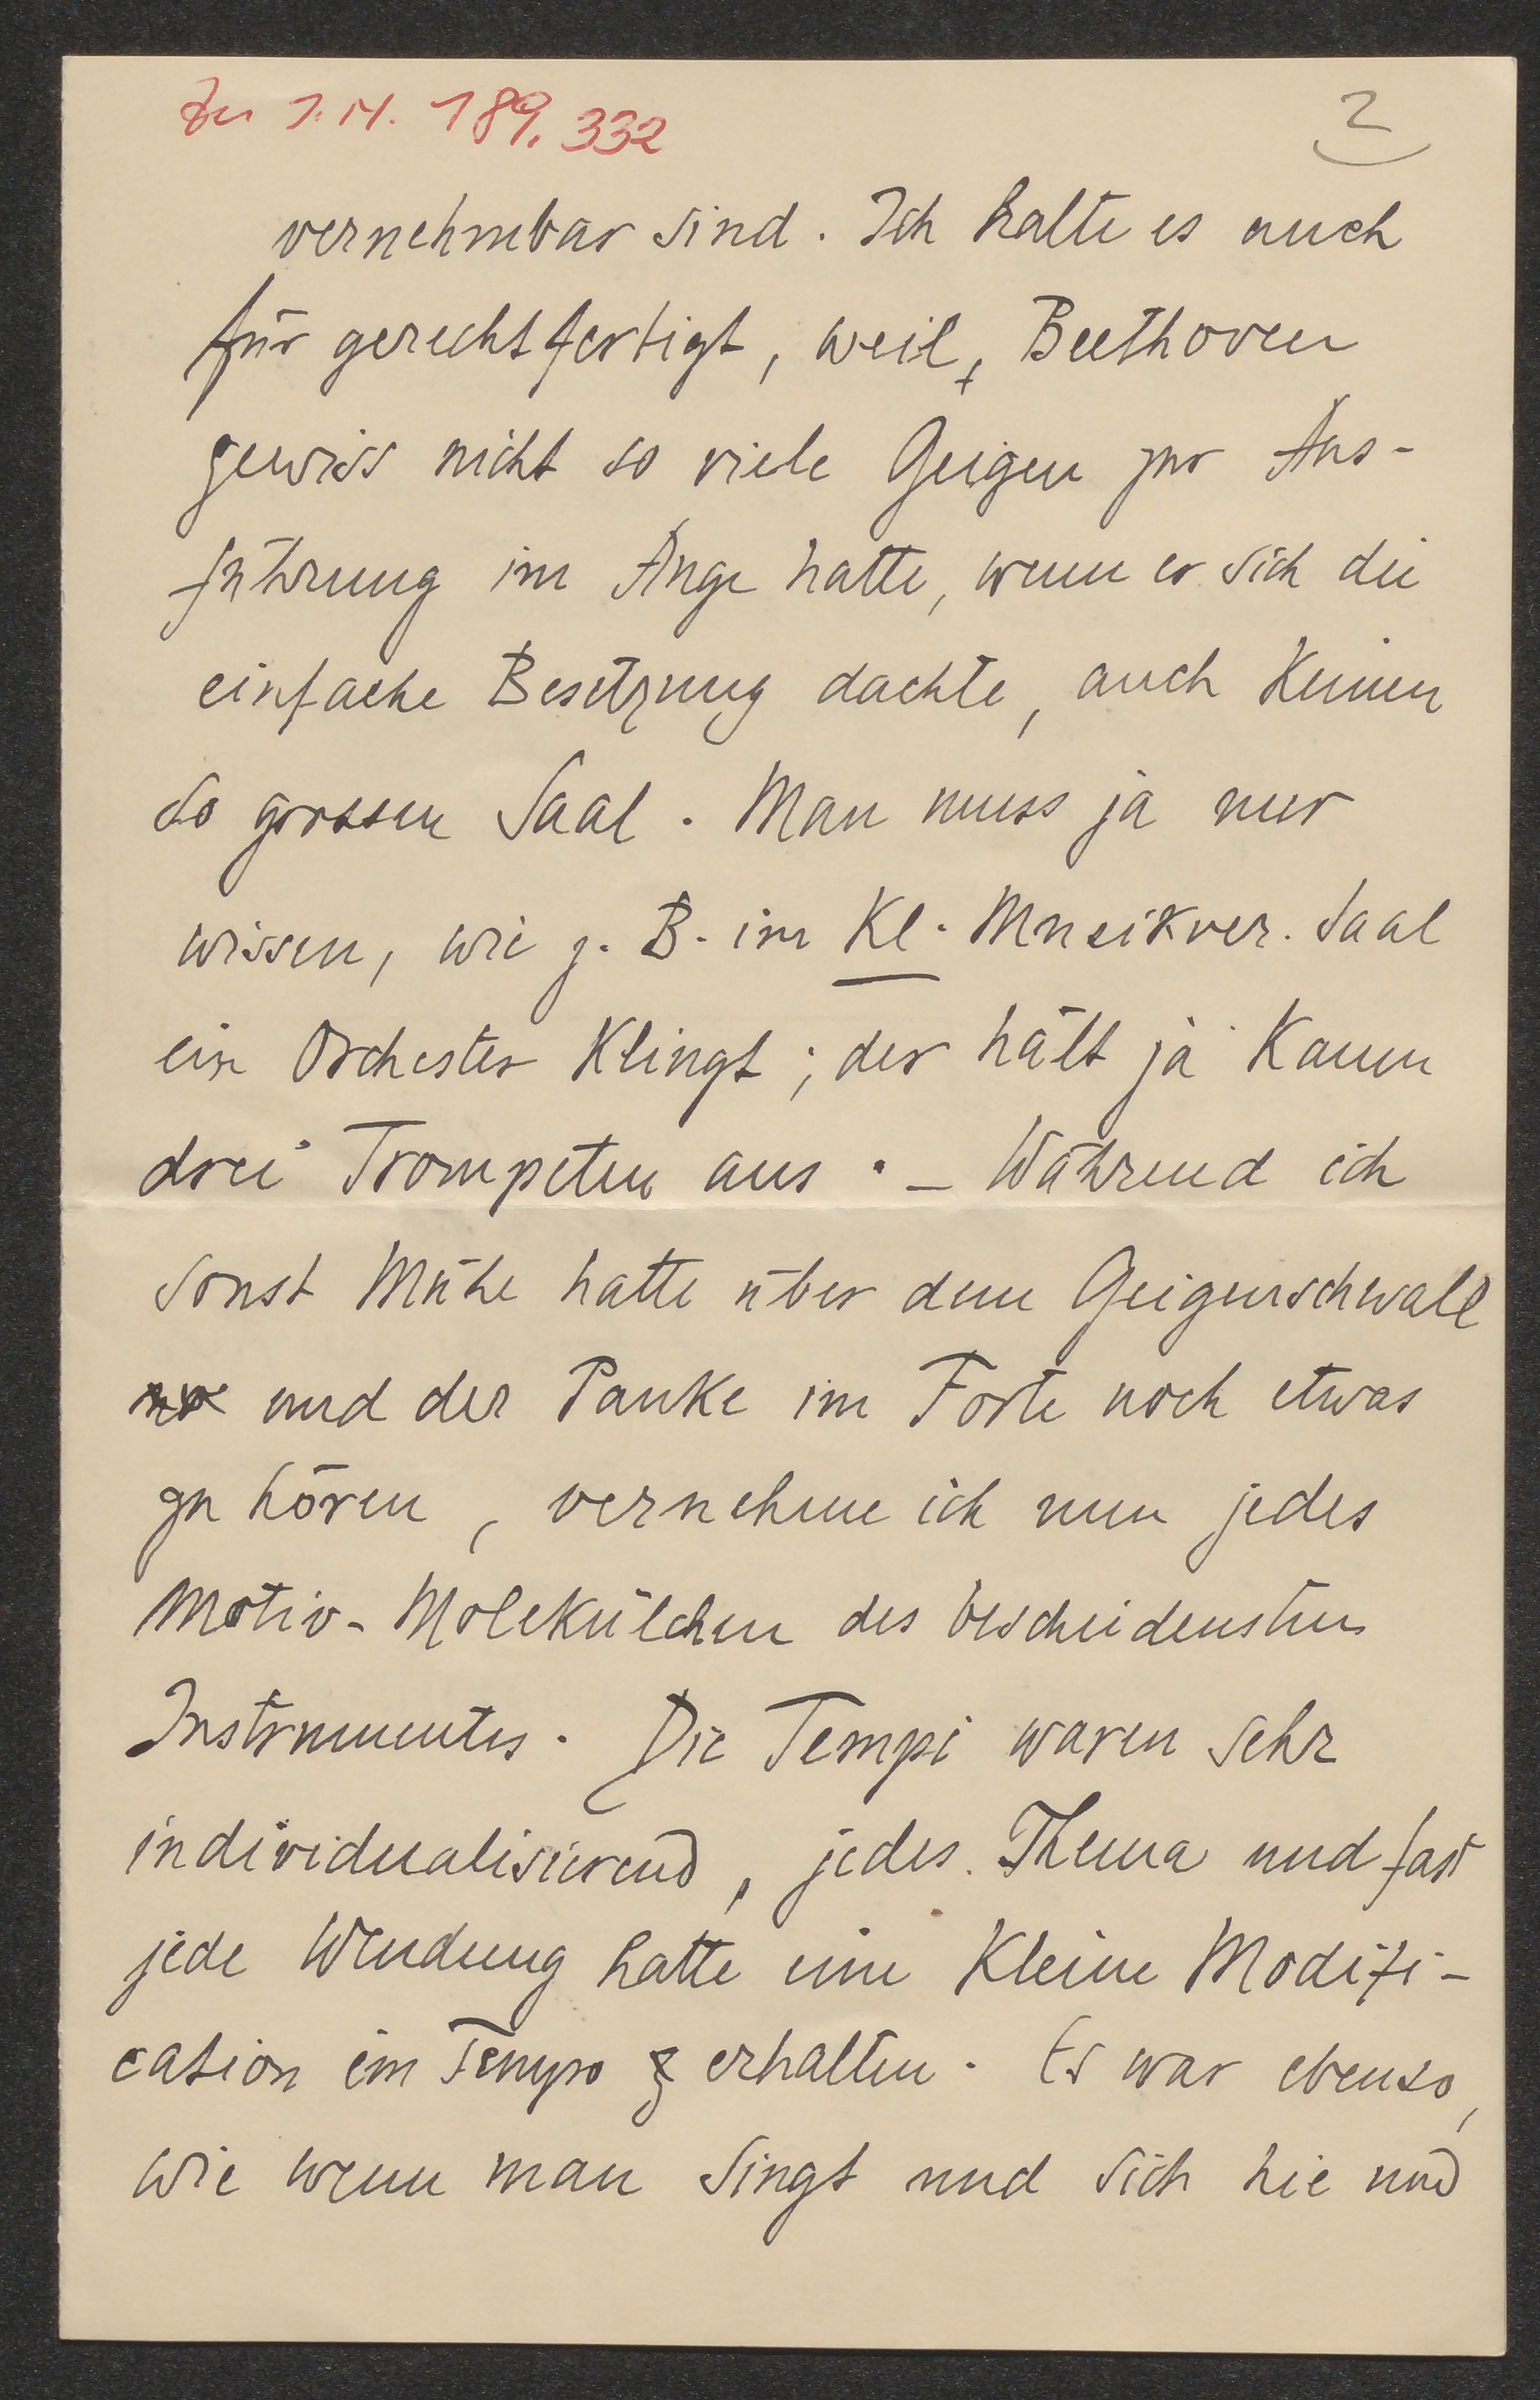 Zu I.N. 189.332
2
vernehmbar sind. Ich halte es auch
für gerechtfertigt, weil, Beethoven
gewiss nicht so viele Geigen zur Aus-
führung im Auge hatte, wenn er sich die
einfache Besetzung dachte, auch keinen
so grossen Saal. Man muss ja nur
wissen, wie z. B. im Kl. Musikver. Saal
ein Orchester klingt; der hält ja kaum
drei Trompeten aus. – Während ich
sonst Mühe hatte über dem Geigenschwall
und der Pauke im Forte noch etwas
zu hören, vernehme ich nun jedes
Motiv-Molekülchen des bescheidensten
Instrumentes. Die Tempi waren sehr
individualisierend, jedes Thema und fast
jede Wendung hatte eine kleine Modifi-
cation im Tempo erhalten. Es war ebenso,
wie wenn man singt und sich hie und